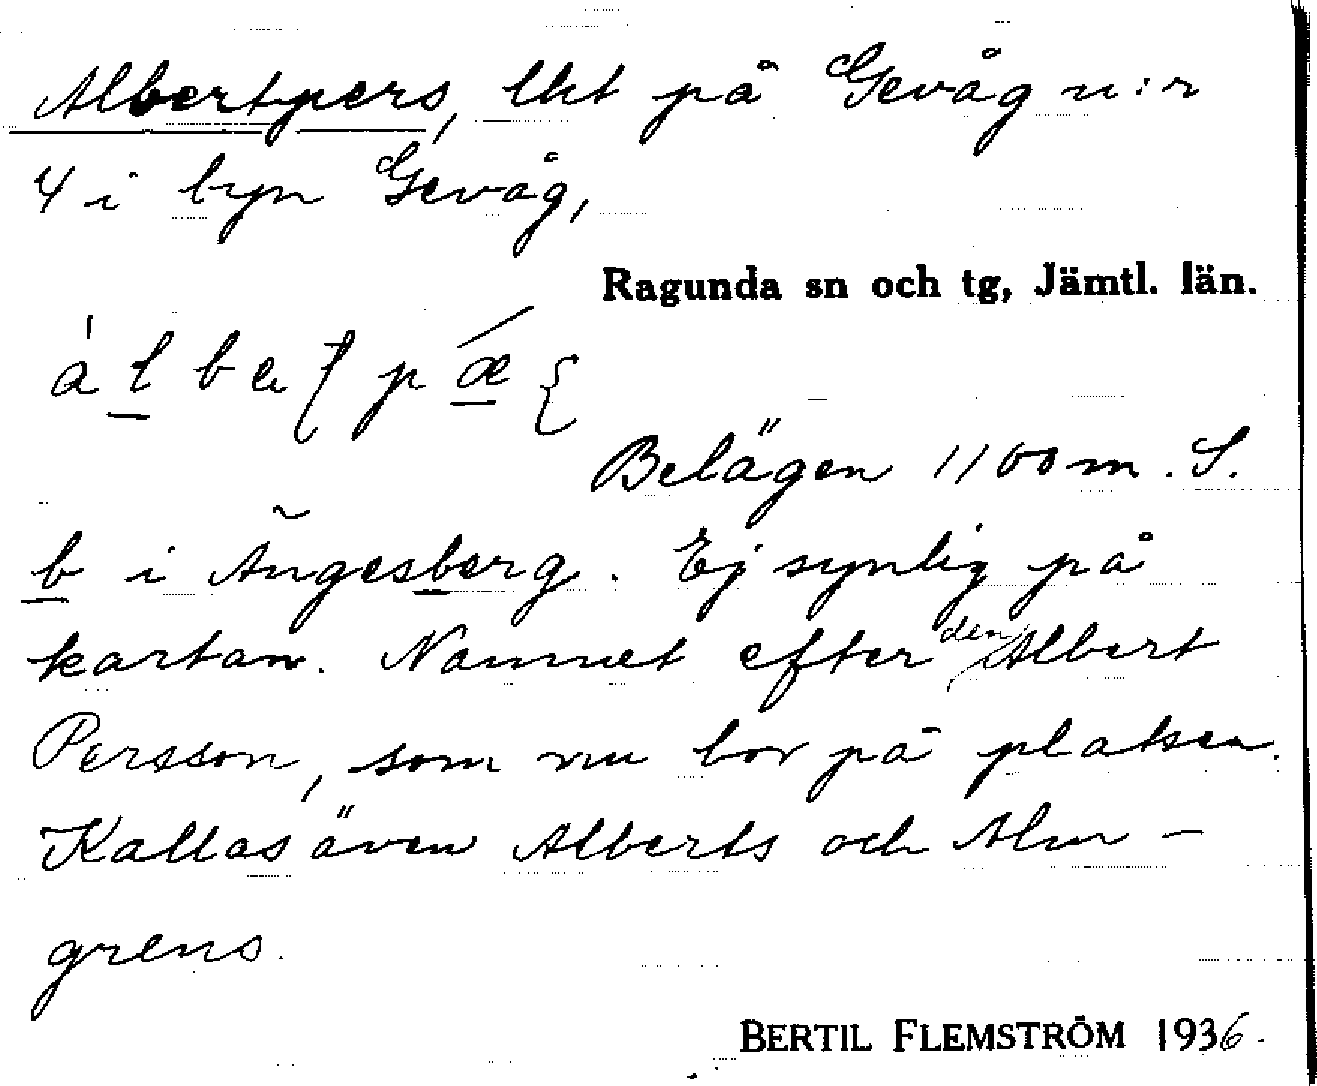 Albertpers, lht på Gevåg n:r
4 i byn Gevåg,
Ragunda sn och tg, Jämtl. län.
Belägen 1100 m. S.
b i Ängesberg. Ej synlig på
kartan. Namnet efter den Albert
Persson, som nu bor på platsen.
Kallas även Alberts och Alm-
grens.
BERTIL FLEMSTRÖM 1936.